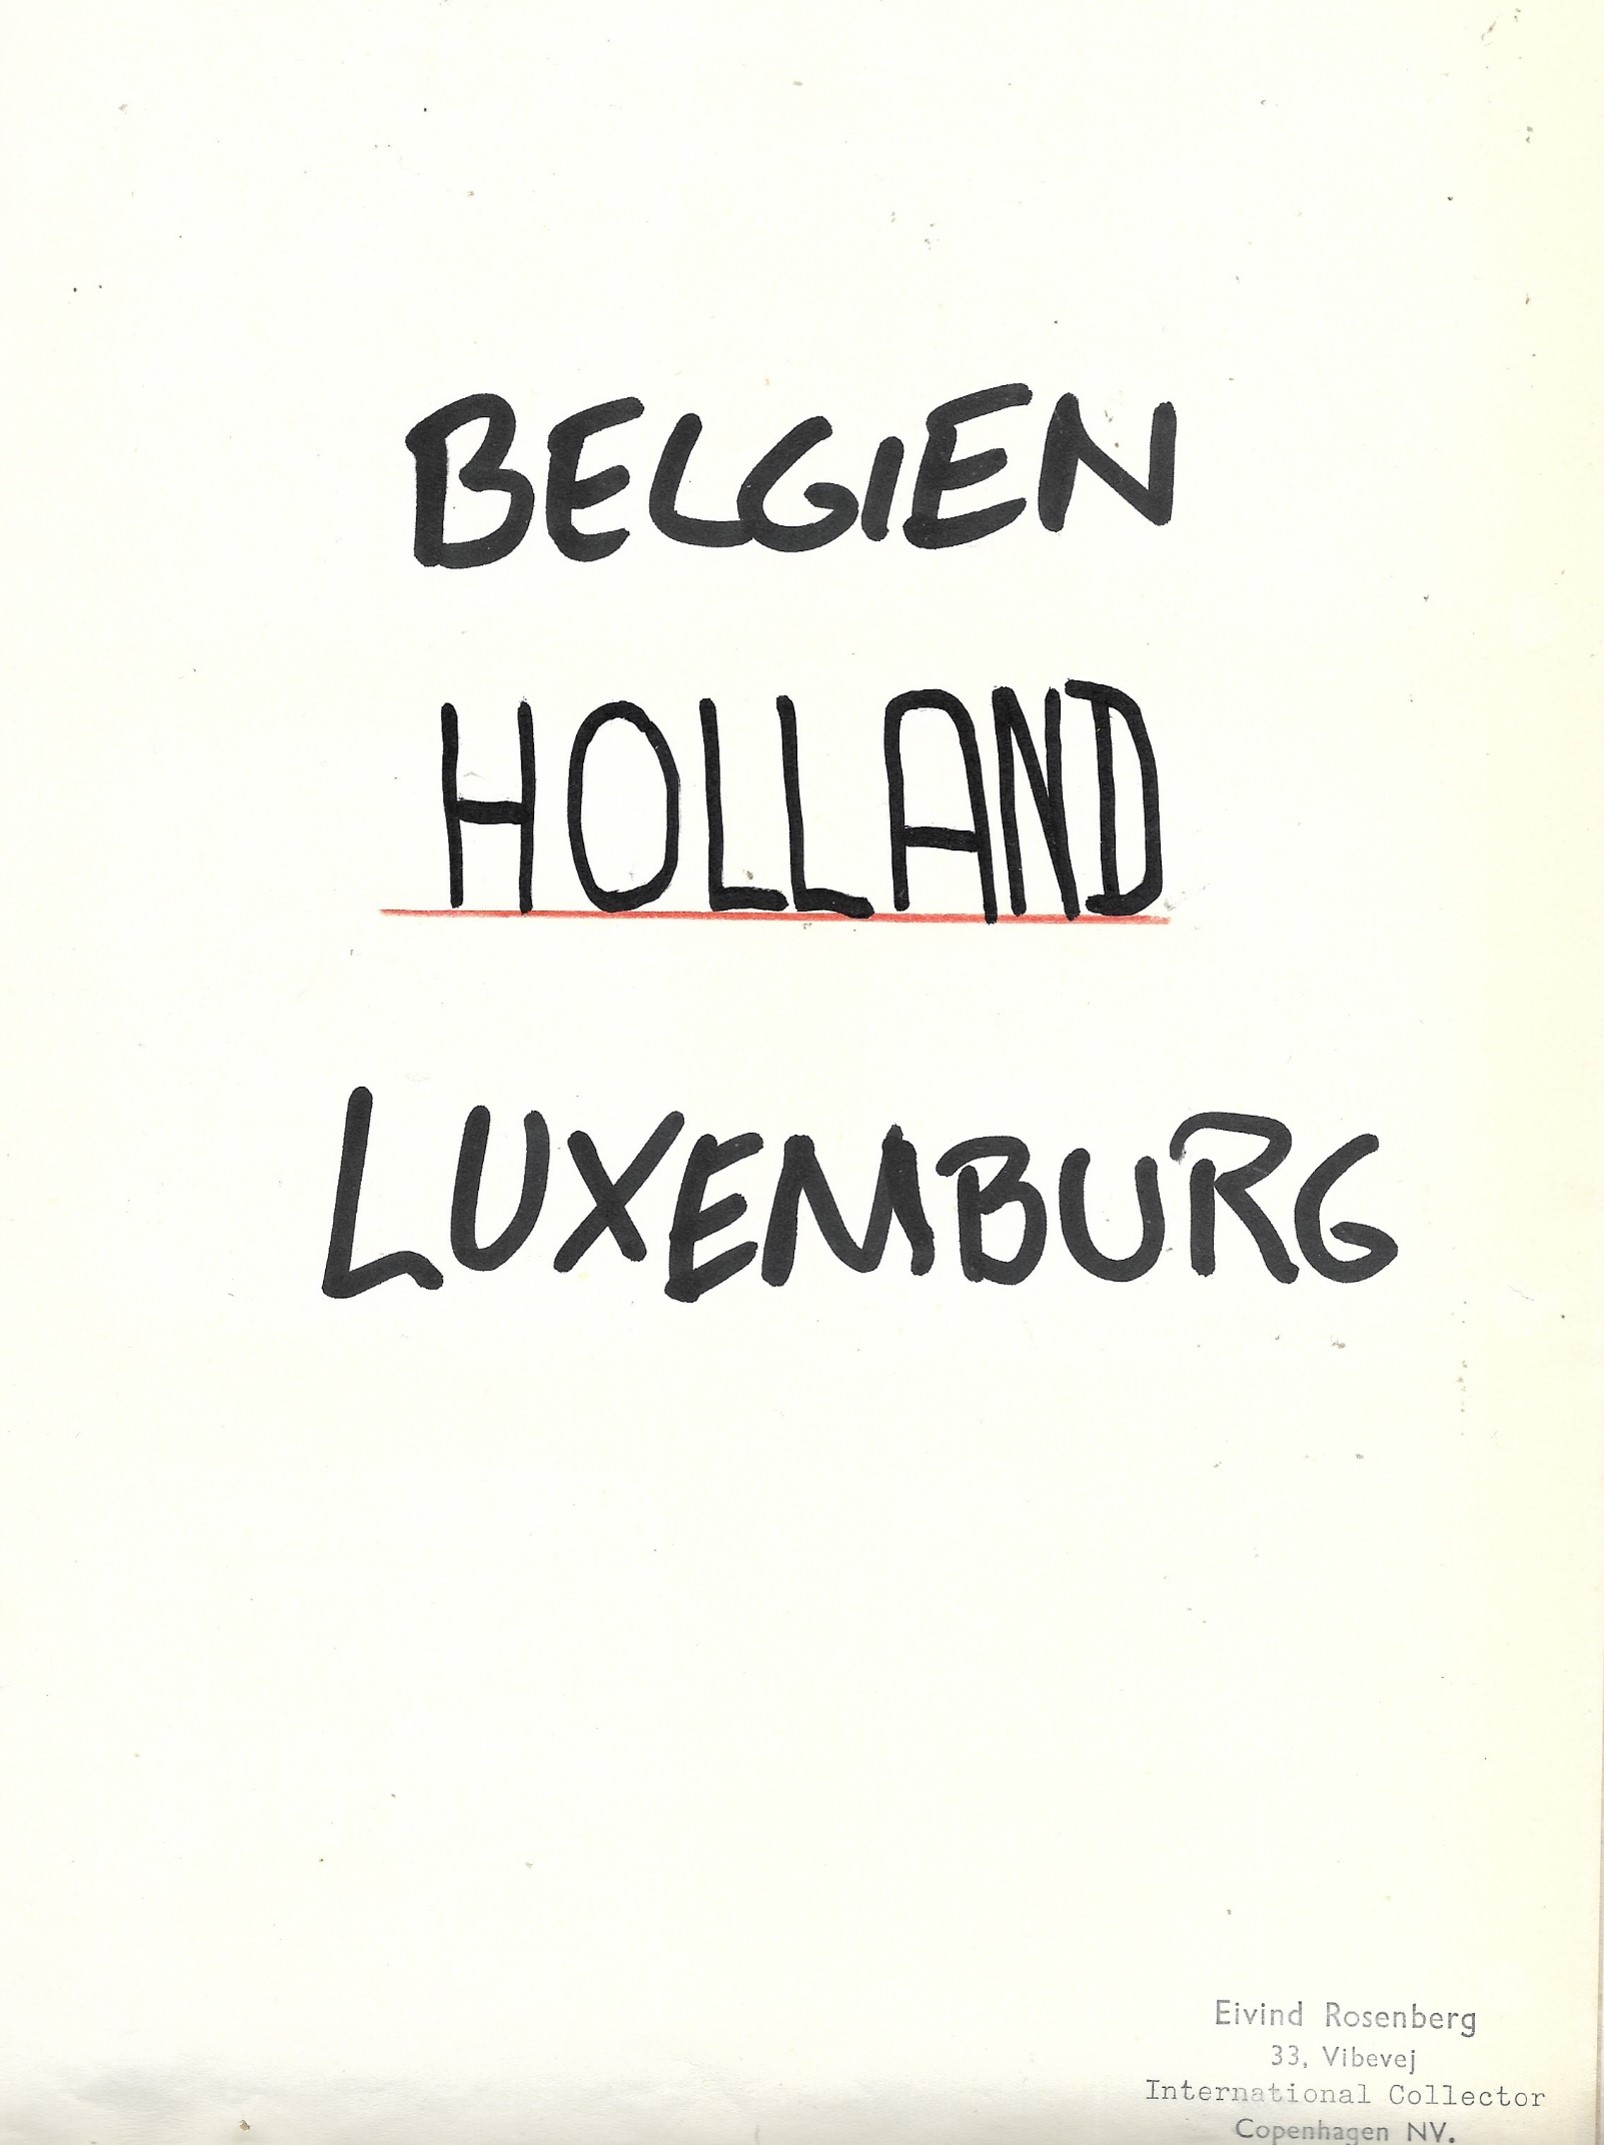 BELGIEN
HOLLAND
LUXEMBURG
Eivind Rosenberg
33, Vibevej
International Collector
Copenhagen NV.